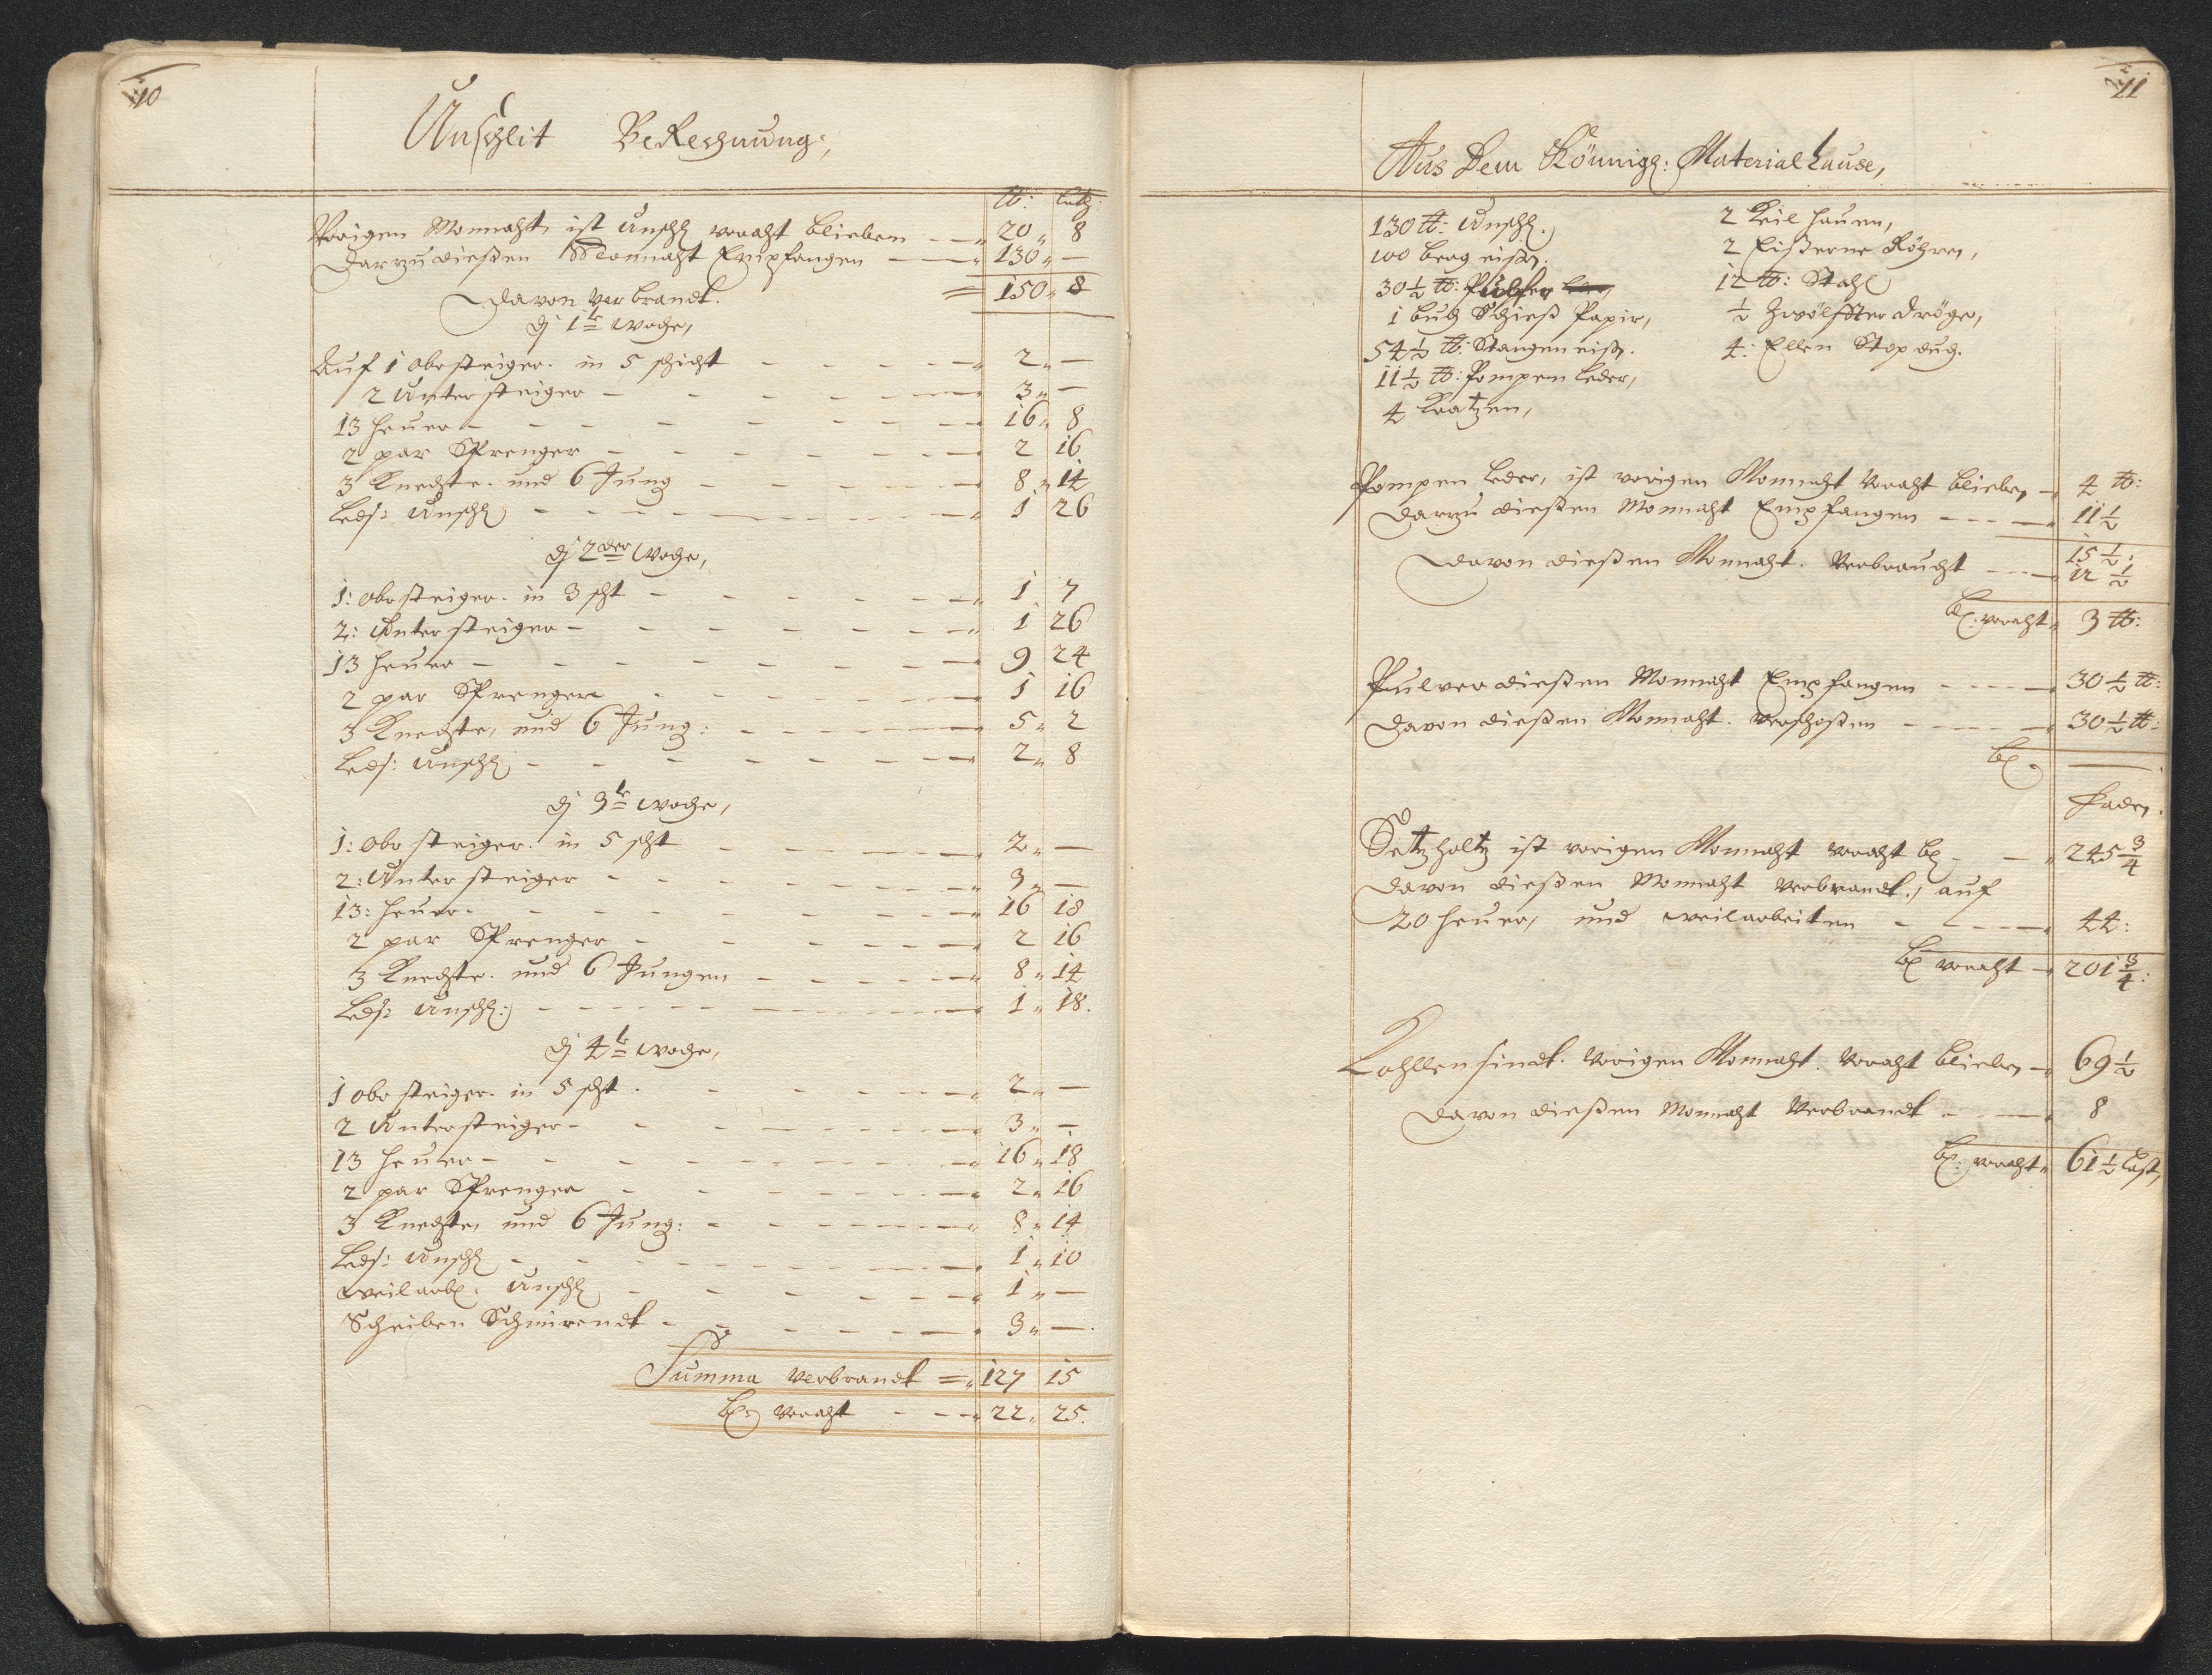 10
Unschlit BeRechnung,
lb: Loth:
Vorigen Monnaht, ist Unschl voraht blieben 20 8
Darzu dießen Monnaht Empfangen 130 —
150 8
Davon Verbrandt.
dj 1te woche,
Auf 1 obrsteiger. in 5 schicht 2 —
2 Untersteiger 3 —
13 heuer 16 8
2 par Sprenger 2 16
3 Knechte. und 6 Jung 8 14
Leds: Unschl 1 26
dj 2der woche,
1: obrsteiger. in 3 scht 1 7
2: Untersteiger 1 26
13 heuer 9 24
2 par Sprenger 1 16
3 Knechte, und 6 Jung: 5 2
Leds: Unschl 2 8
dj 3te woche,
1: obrsteiger. in 5 scht 2 —
2: Untersteiger 3 —
13: heuer 16 18
2 par Sprenger 2 16
3 Knechte. und 6 Jungen 8 14
Leds: Unschl: 1 18.
dj 4te woche,
1 obrsteiger. in 5 scht. 2 —
2 Untersteiger 3 —
13 heuer 16 18
2 par Sprenger 2 16
3 Knechte, und 6 Jung: 8 14
Leds: Unschl 1 10
weilarb: Unschl 1 —
Scheiben Schmirendt 3 —
Summa verbrandt = 127 15
bl: Voraht 22 25.
11
Aus Dem Könnigl: Materialhause,
130 lb: Unschl.
100 berg eisen.
30½ lb: Pulfer
1 buch Schieß Papir,
54½ lb: Stangen eisen.
11½ lb: Pompen leder,
4 Kratzen,
2 Keil hauen,
2 Eißerne Röhren,
12 lb: Stahl
½ Zwölffter dröge,
4: Ellen Stop duch.
Pompen leder, ist vorigen Monnaht Voraht blieben 4 lb:
Darzu dießen Monnaht Empfangen 11½
15½:
Davon dießen Monnaht. Verbraucht 12½
bl: voraht 3 lb:
Pulver dießen Monnaht Empfangen 30½ lb:
Davon dießen Monnaht. verschoßen 30½ lb:
bl. —
Faden.
Setzholtz ist vorigen Monnaht Voraht bl 245¾
Davon dießen Monnaht verbrandt., auf
20 heuer, und weilarbeiten 44:
bl voraht 201¾:
Kohllen sindt. Vorigen Monnaht. Voraht blieben 69½
Davon dießen Monnaht Verbrandt 8
bl: voraht 61½ Last,